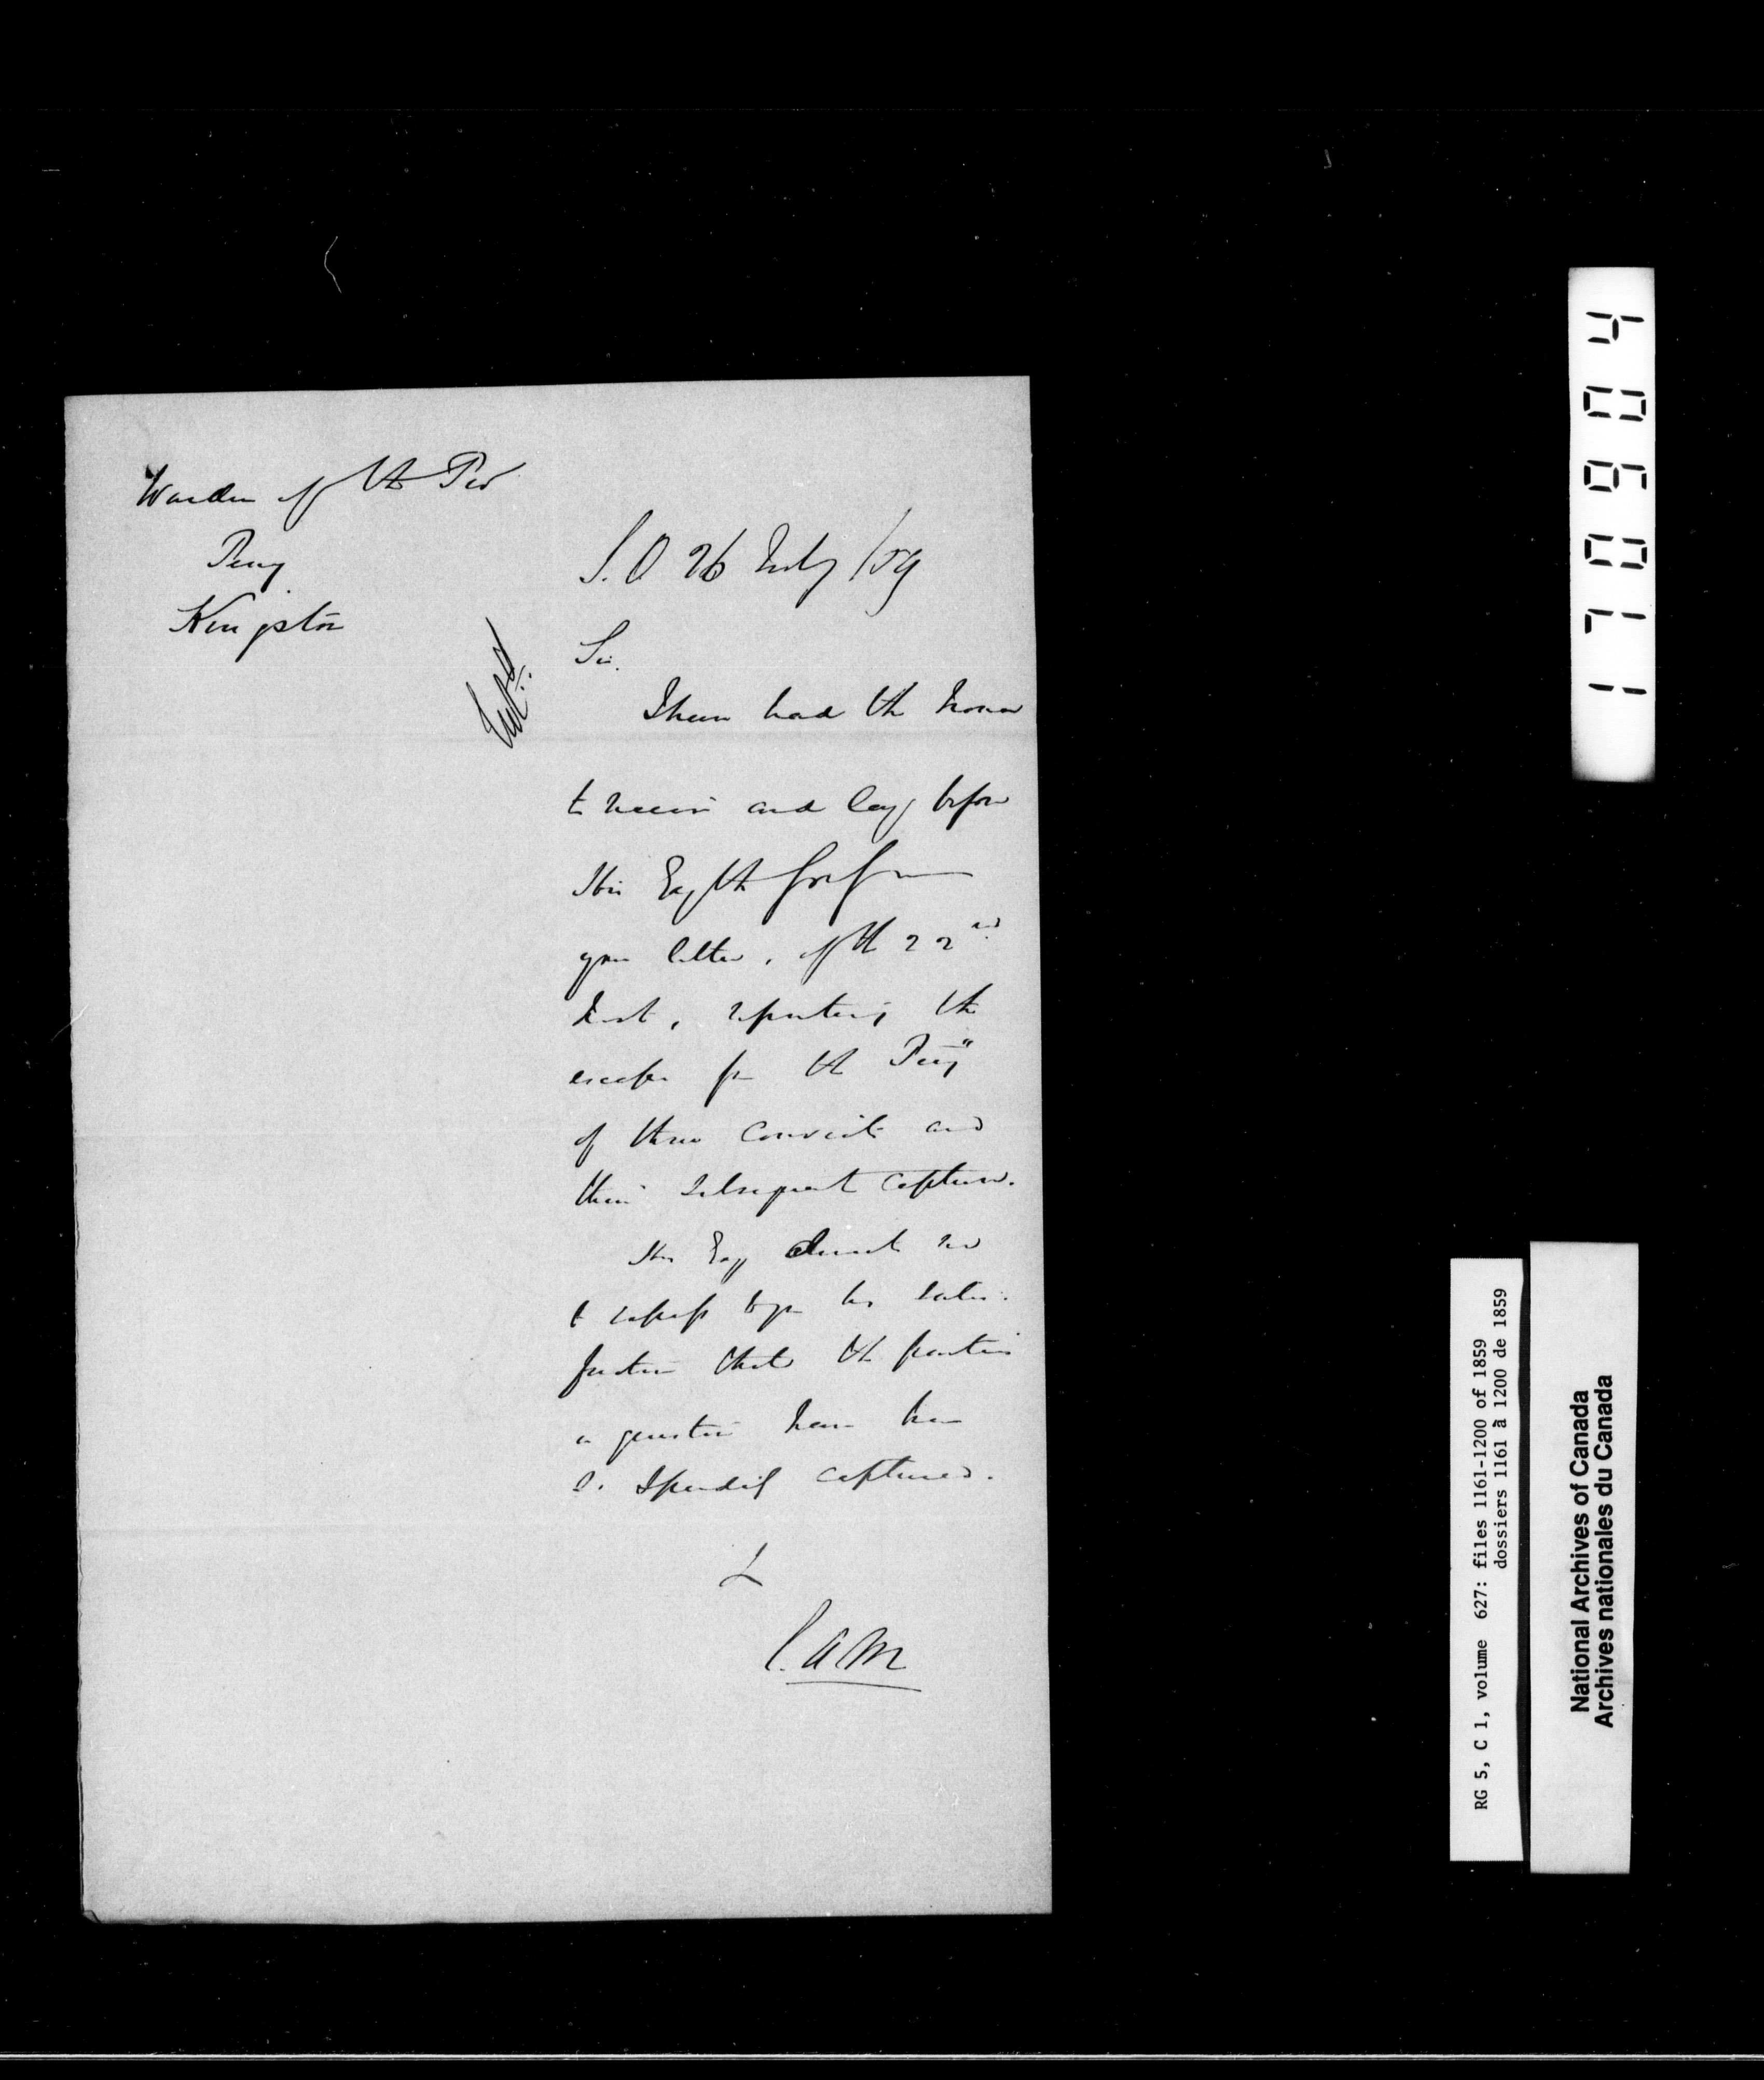 Warden of the Pro
Peny
Kingston
S.O 26 July /59
Entd
Sir.
I have had the honor
to receive and lay before
His Exy the Gov
your letter, of the 22nd
Inst, reporting the
escape fm the Peny
of three Convicts and
their subsequent capture.
His Exy directs me
to express to you his satis-
faction that the parties
in question have been
so speedily captured.
&
C.A.M
170904
RG 5, C 1, volume 627: files 1161-1200 of 1859
dossiers 1161 à 1200 de 1859
National Archives of Canada
Archives nationales du Canada